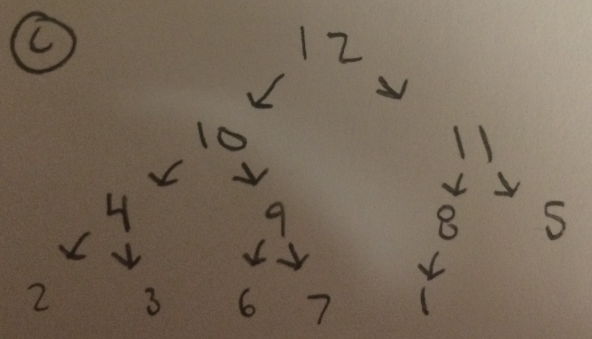 C 12
10 11
4 9 8 5
2 3 6 7 1